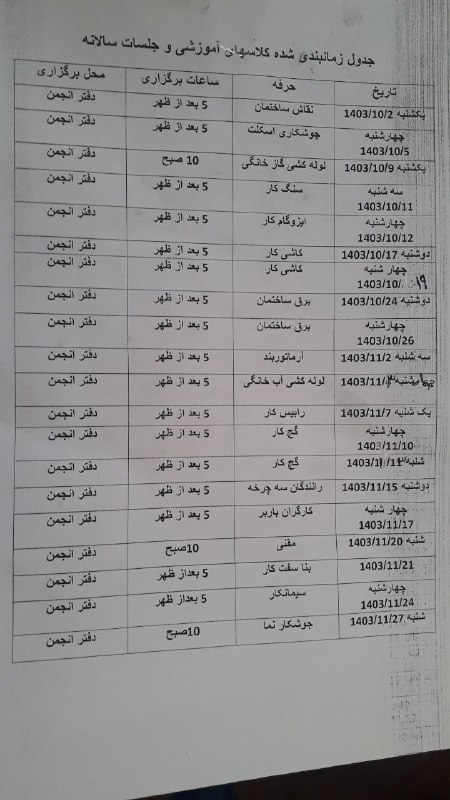 جدول زمانبندی شده کلاسهای آموزشی و جلسات سالانه
تاریخ حرفه ساعات برگزاری محل برگزاری
یکشنبه 1403/10/2 نقاش ساختمان 5 بعد از ظهر دفتر انجمن
چهارشنبه 1403/10/5 جوشکاری اسکلت 5 بعد از ظهر دفتر انجمن
یکشنبه 1403/10/9 لوله کشی گاز خانگی 10 صبح دفتر انجمن
سه شنبه 1403/10/11 سنگ کار 5 بعد از ظهر دفتر انجمن
چهارشنبه 1403/10/12 ایزوگام کار 5 بعد از ظهر دفتر انجمن
دوشنبه 1403/10/17 کاشی کار 5 بعد از ظهر دفتر انجمن
چهار شنبه 1403/10/۱۹ کاشی کار 5 بعد از ظهر دفتر انجمن
دوشنبه 1403/10/24 برق ساختمان 5 بعد از ظهر دفتر انجمن
چهارشنبه 1403/10/26 برق ساختمان 5 بعد از ظهر دفتر انجمن
سه شنبه 1403/11/2 آرماتوربند 5 بعد از ظهر دفتر انجمن
چهارشنبه 1403/11/۳ لوله کشی آب خانگی 5 بعد از ظهر دفتر انجمن
یک شنبه 1403/11/7 رابیس کار 5 بعد از ظهر دفتر انجمن
چهارشنبه 1403/11/10 گچ کار 5 بعد از ظهر دفتر انجمن
شنبه 1403/11/۱۳ گچ کار 5 بعد از ظهر دفتر انجمن
دوشنبه 1403/11/15 رانندگان سه چرخه 5 بعد از ظهر دفتر انجمن
چهار شنبه 1403/11/17 کارگران باربر 5 بعد از ظهر دفتر انجمن
شنبه 1403/11/20 مقنی 10صبح دفتر انجمن
1403/11/21 بنا سفت کار 5 بعداز ظهر دفتر انجمن
چهارشنبه 1403/11/24 سیمانکار 5 بعداز ظهر دفتر انجمن
شنبه 1403/11/27 جوشکار نما 10صبح دفتر انجمن